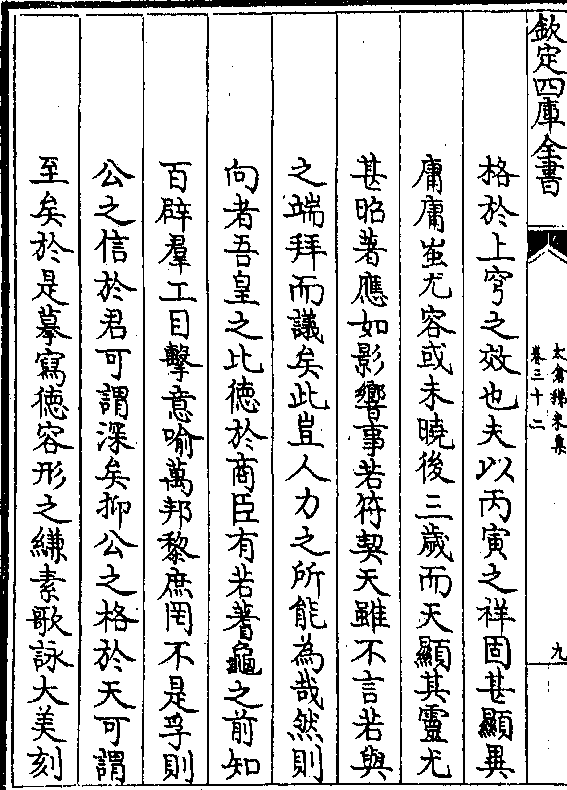 欽定四庫全書
太倉稊米集
卷三十二
九
格於上穹之效也夫以丙寅之祥固甚顯異
庸庸蚩尤容或未曉後三歲而天顯其靈尤
甚昭著應如影響事若符契天雖不言若與
之端拜而議矣此豈人力之所能為哉然則
向者吾皇之比德於商臣有若蓍龜之前知
百辟羣工目擊意喻萬邦黎庶罔不是孚則
公之信於君可謂深矣抑公之格於天可謂
至矣於是摹寫德容形之縑素歌詠大美刻